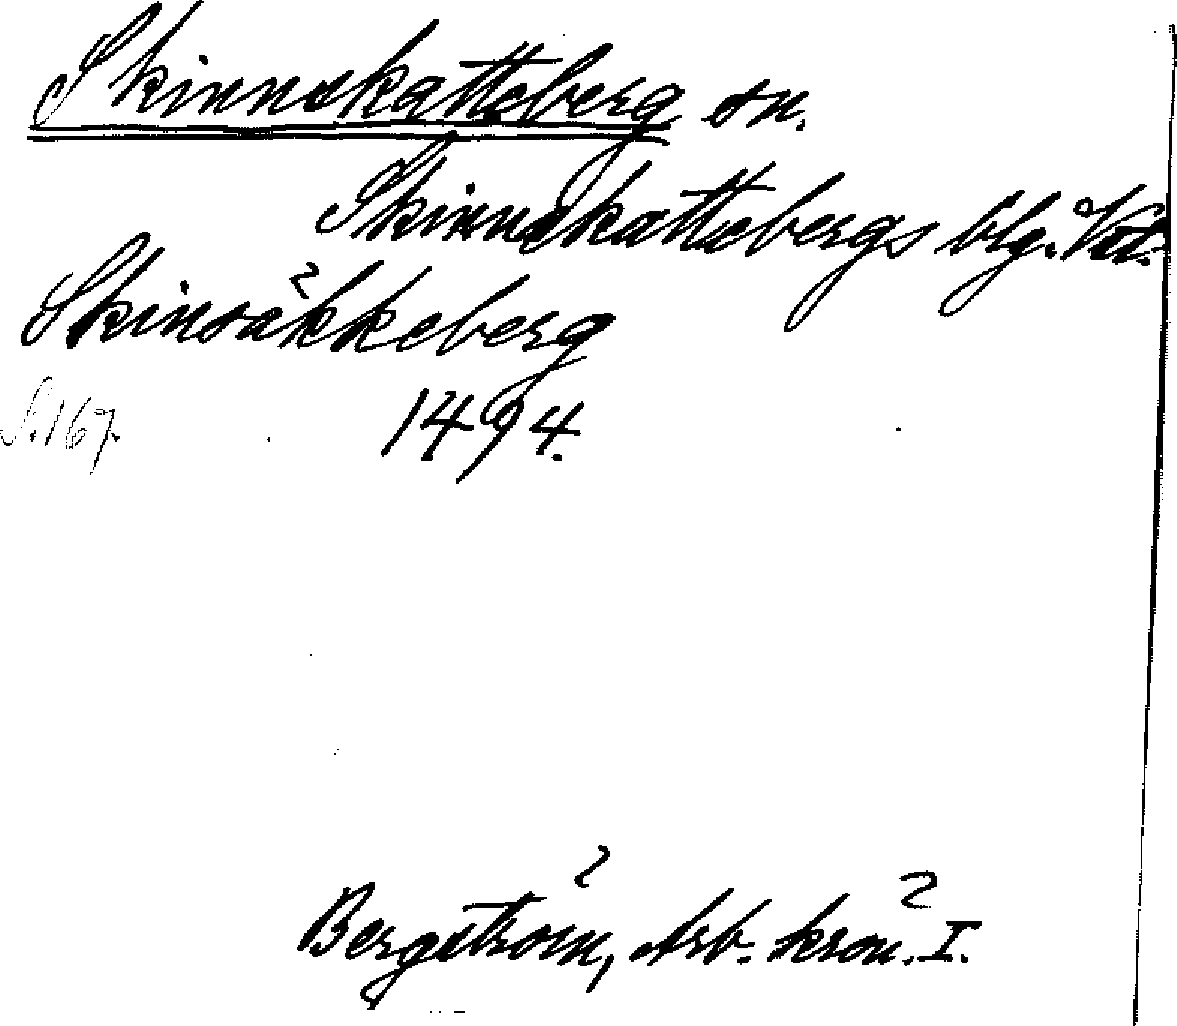 Skinnskatteberg sn.
Skinnskattebergs blg. Vstm.
Skinsäkkeberg
S. 167. 1494.
Bergström, Arb. krön. I.